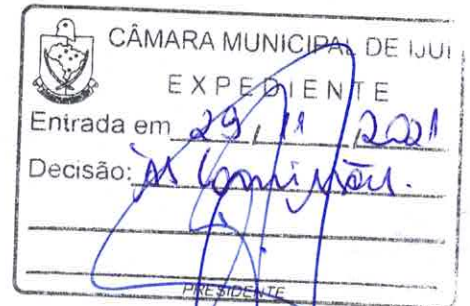 CÂMARA MUNICIPAL DE IJUI
EXPEDIENTE
Entrada em 29, 11 2021
Decisão: Às Comissões.
PRESIDENTE